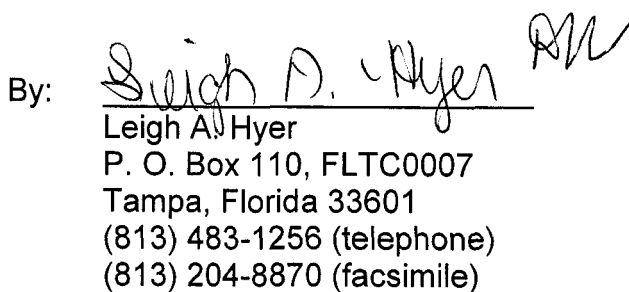 By: Leigh A. Hyer
Leigh A. Hyer
P. O. Box 110, FLTC0007
Tampa, Florida 33601
(813) 483-1256 (telephone)
(813) 204-8870 (facsimile)